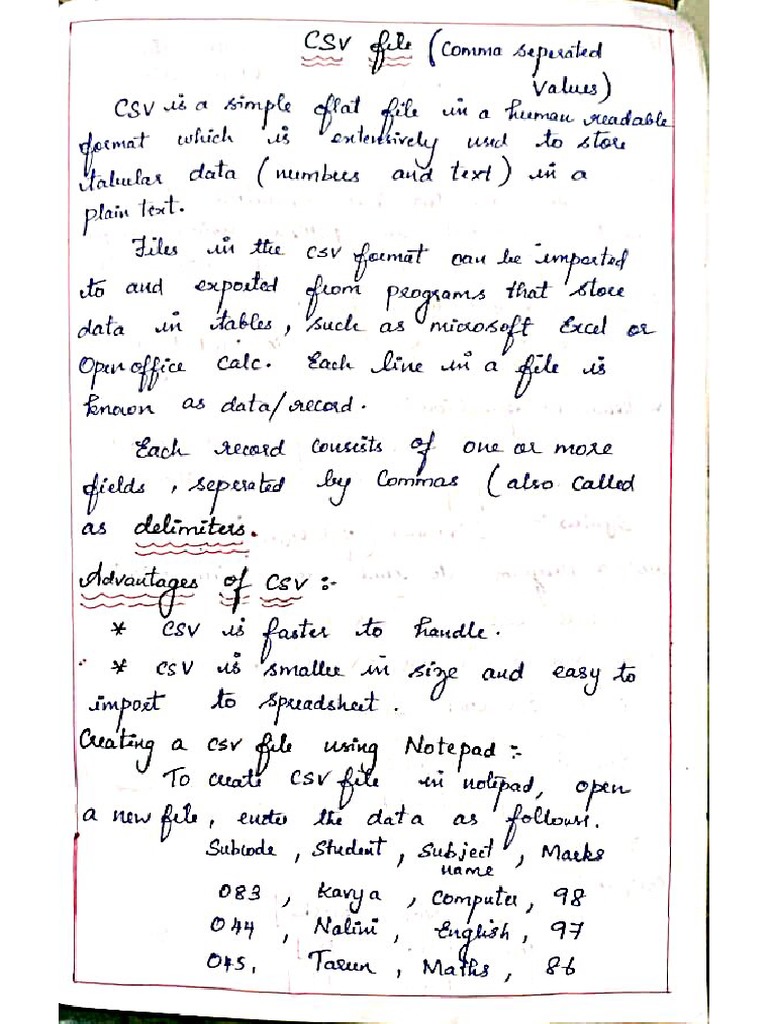 CSV file (Comma seperated
Values)
CSV is a simple flat file in a human readable
format which is extensively used to store
tabular data (numbers and text) in a
plain text.
Files in the CSV format can be imported
to and exported from programs that store
data in tables, such as microsoft Excel or
Open office Calc. Each line in a file is
known as data/record.
Each record consists of one or more
fields, seperated by Commas (also called
as delimiters.
Advantages of CSV :-
* CSV is faster to handle.
* CSV is smaller in size and easy to
import to spreadsheet.
Creating a CSV file using Notepad :-
To create CSV file in notepad, open
a new file, enter the data as follows.
Subcode, Student, Subject, Marks
name
083, Kavya, Computer, 98
044, Nalini, English, 97
045, Tarun, Maths, 86